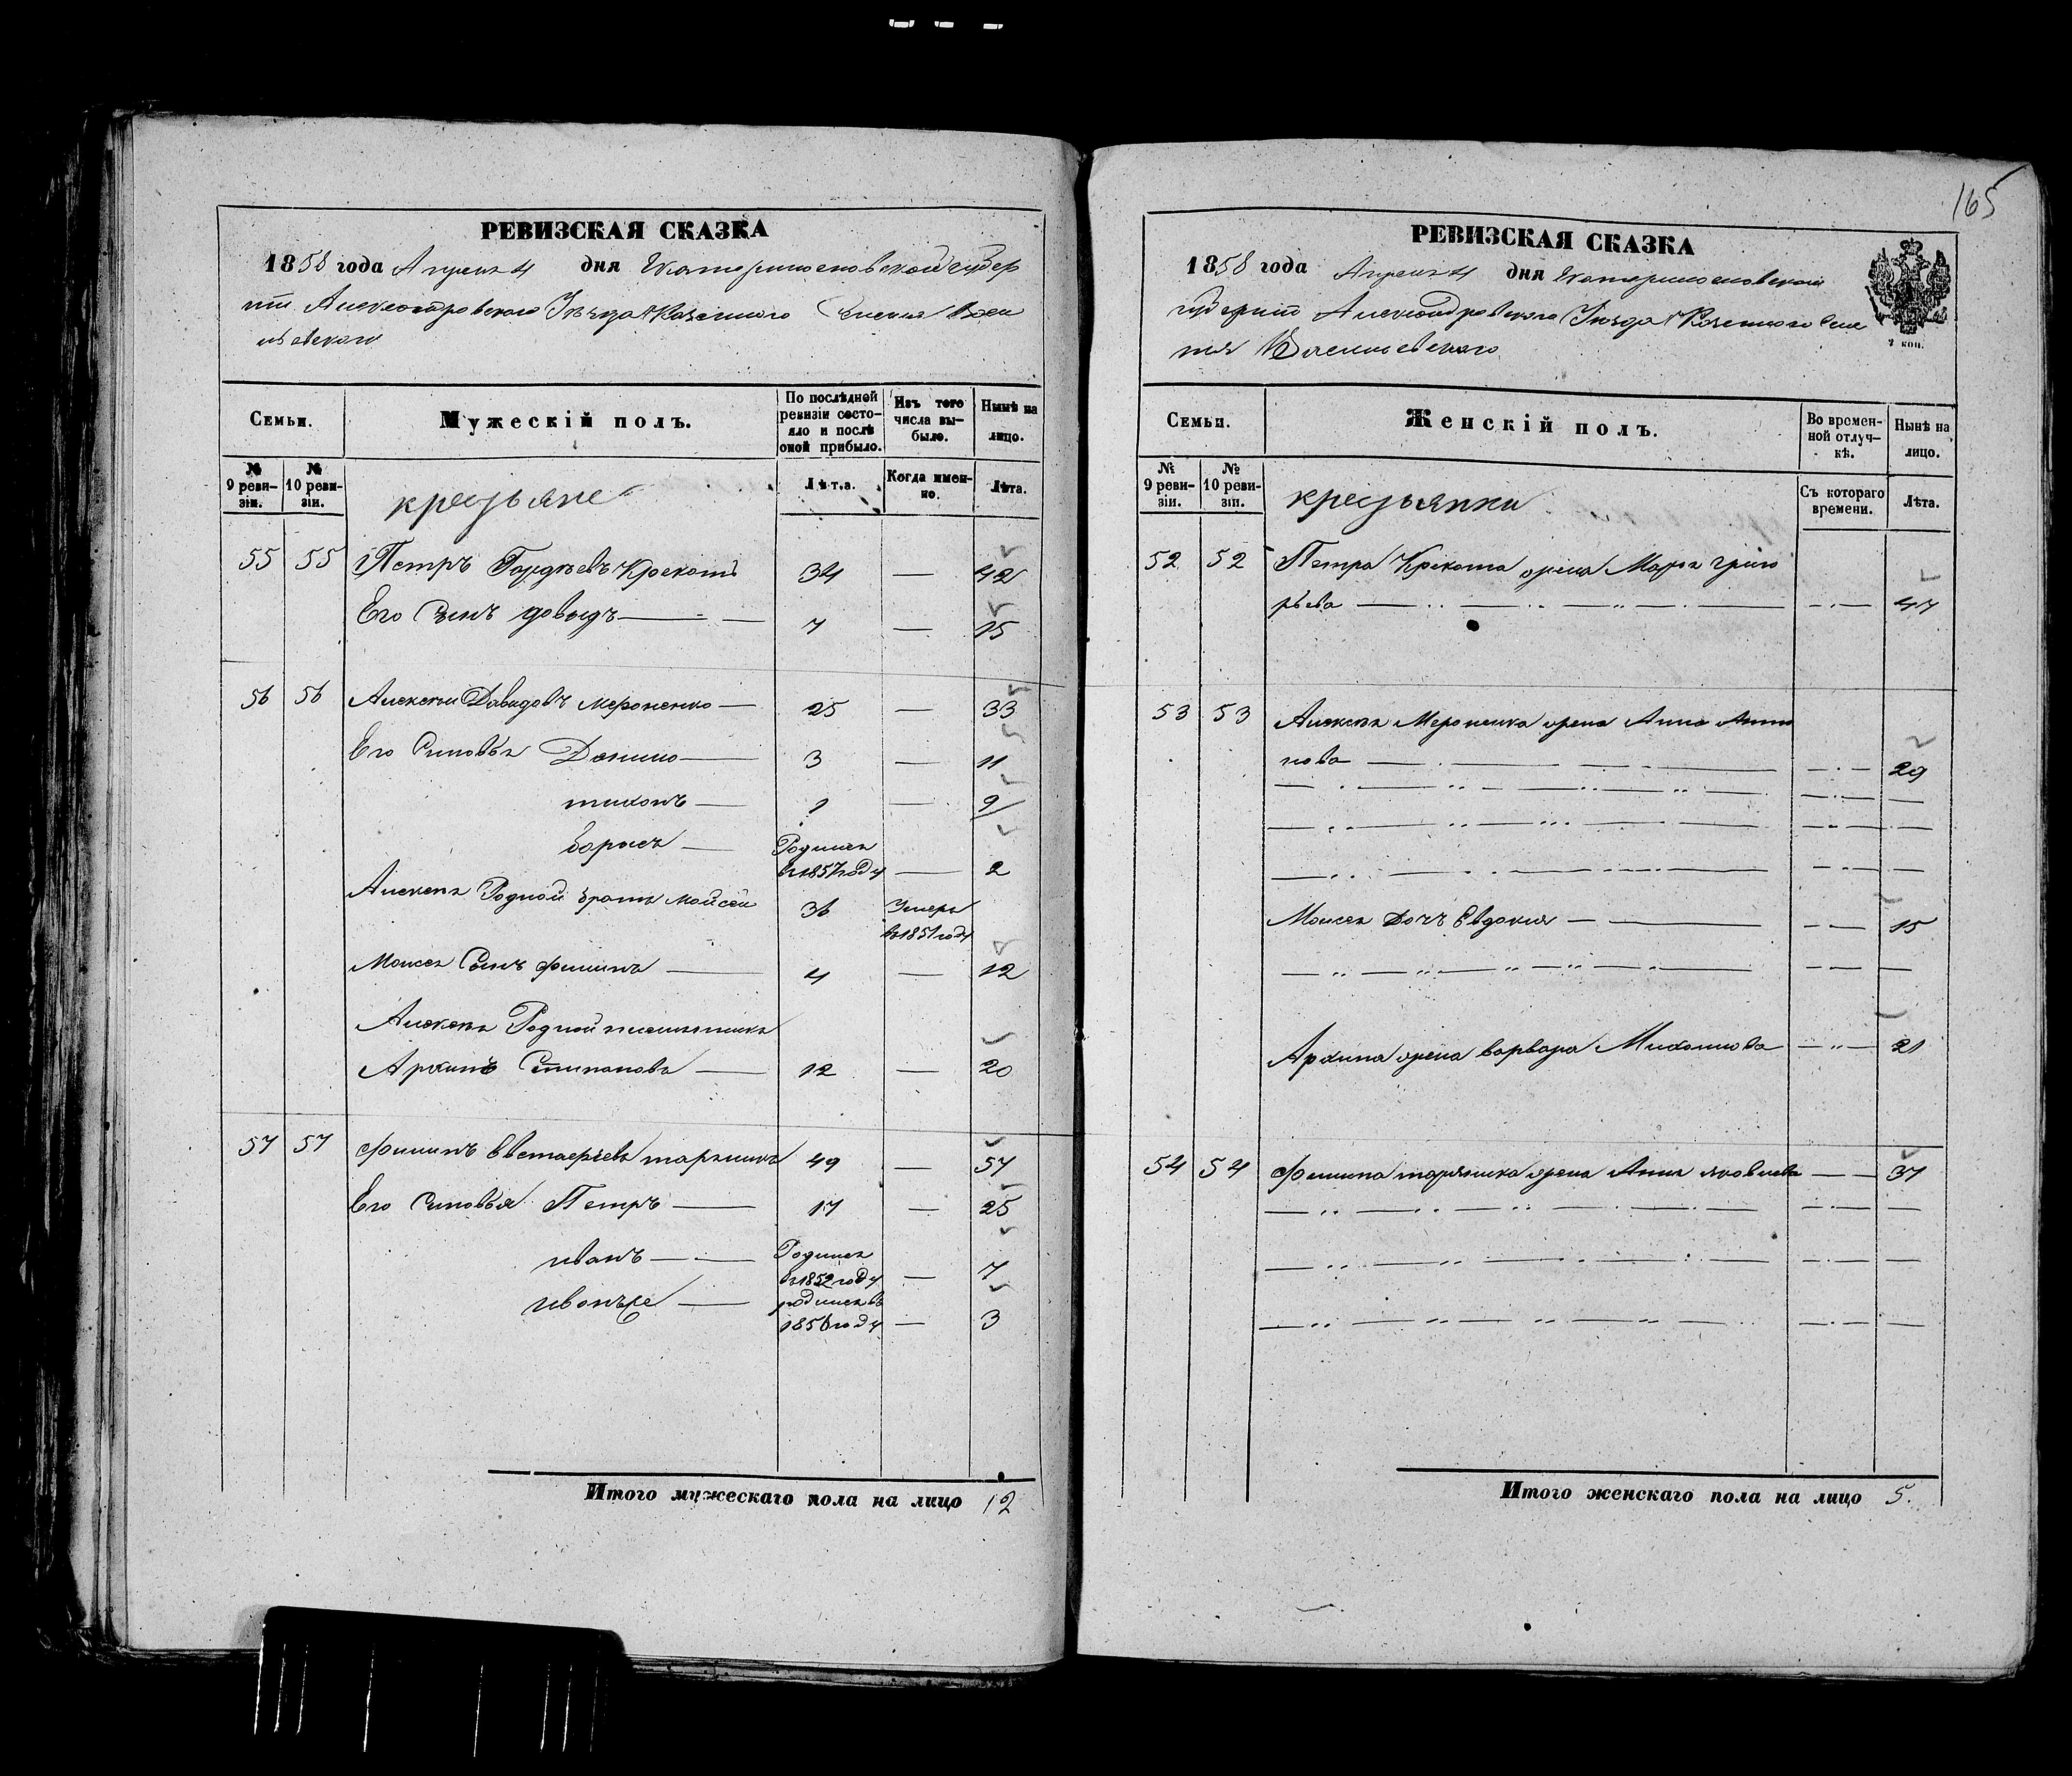 165
РЕВИЗСКАЯ СКАЗКА
1858 года Апреля 4 дня Екатеринославской губер
нии Александровского Уезда Казенного Селения Васи
льевского
Семьи.
Мужескій полъ.
По послѣдней ревизіи состояло и послѣ оной прибыло.
Изъ того числа выбыло.
Нынѣ на лицо.
№ 9 ревизіи.
№ 10 ревизіи.
крестьяне
Лѣта.
Когда именно.
Лѣта.
55 55 Петръ Гордѣевъ Крекотъ 34 — 42
Его Сынъ довыдъ — 7 — 15
56 56 Алексей Давидовъ мероненко — 25 — 33
Его Синовья Данило — 3 — 11
тихонъ — 1 — 9
борысъ — Родился
в 1857 году — 2
Алексея Родной братъ Мойсей 36 Умеръ
в 1851 году
Моисея Сынъ филипъ — 4 — 12
Алексея Родной племянникъ
Архипъ Степанова — 12 — 20
57 57 филипъ тарыникъ 49 — 57
Его Синовья Петръ — 17 — 25
иванъ — Родился
в 1852 году — 7
родился въ
1856 году — 3
Итого мужескаго пола на лицо 12
РЕВИЗСКАЯ СКАЗКА
1858 года Апреля 4 дня Екатеринославской
губернии Александровского Уезда Казенного Селе
ния Васильевского
2 коп.
Семьи.
Женскій полъ.
Во временной отлучкѣ.
Нынѣ на лицо.
№ 9 ревизіи.
№ 10 ревизіи.
крестьянки
Съ котораго времени.
Лѣта.
52 52 Петра Крекота жена Марья григо
рьева — 47
53 53 Алексея Мероненка жена Анна Анто
нова — 29
Моисея Дочъ Евдокия — 15
Архипа жена варвара Михаилова — 21
54 54 филипа жена Анна яковлева — 37
Итого женскаго пола на лицо 5.